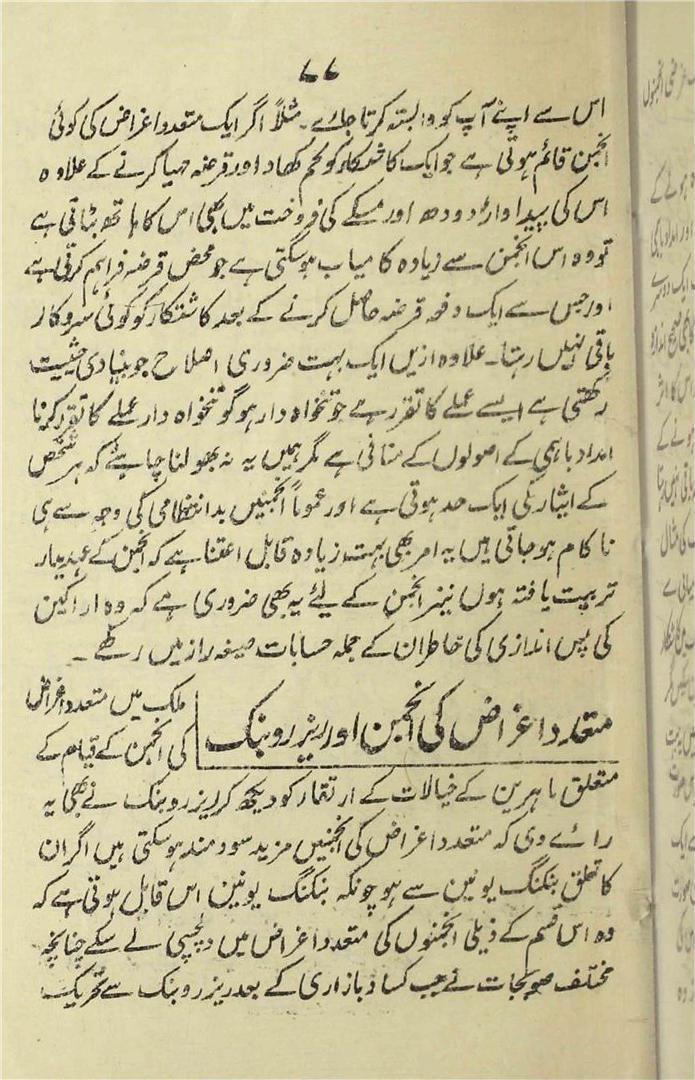 ۷۷
اس سے اپنے آپ کو وابستہ کرتا جائے۔ مثلاً اگر ایک متعدد اغراض کی کوئی
انجمن قائم ہوتی ہے جو ایک کاشتکار کو تخم کھاد اور قرضہ مہیا کرنے کے علاوہ
اس کی پیداوار، دودھ اور مسکے کی فروخت میں بھی اس کا ہاتھ بٹاتی ہے
تو وہ اس انجمن سے زیادہ کامیاب ہوسکتی ہے جو محض قرضہ فراہم کرتی ہے
اور جس سے ایک دفعہ قرضہ حاصل کرنے کے بعد کاشتکار کو کوئی سروکار
باقی نہیں رہتا۔ علاوہ ازیں ایک بہت ضروری اصلاح جو بنیادی حیثیت
رکھتی ہے ایسے عملے کا تقرر ہے جو تنخواہ دار ہو گو تنخواہ دار عملے کا تقرر کرنا
امداد باہمی کے اصولوں کے منافی ہے مگر ہمیں یہ نہ بھولنا چاہئے کہ ہر شخص
کے ایثار کی ایک حد ہوتی ہے اور عموماً انجمنیں بدانتظامی کی وجہ سے ہی
ناکام ہوجاتی ہیں یہ امر بھی بہت زیادہ قابل اعتنا ہے کہ انجمن کے عہدیدار
تربیت یافتہ ہوں نیز انجمن کے لئے یہ بھی ضروری ہے کہ وہ اراکین
کی پس اندازی کی خاطر ان کے جملہ حسابات صیغہ راز میں رکھے۔
متعدد اغراض کی انجمن اور ریزرو بنک
ملک میں متعدد اغراض
کی انجمن کے قیام کے
متعلق ماہرین کے خیالات کے ارتقار کو دیکھ کر ریزرو بنک نے بھی یہ
رائے دی کہ متعدد اغراض کی انجمنیں مزید سودمند ہوسکتی ہیں اگر ان
کا تعلق بنکنگ یونین سے ہو چونکہ بنکنگ یونین اس قابل ہوتی ہے کہ
وہ اس قسم کے ذیلی انجمنوں کی متعدد اغراض میں دلچسپی لے سکے چنانچہ
مختلف صوبجات نے جب کساد بازاری کے بعد ریزرو بنک سے تحریک